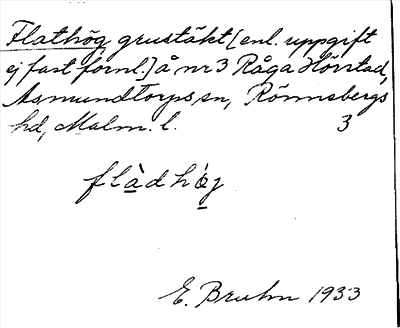 Flathög grustäkt [enl. uppgift
ej fast fornl.] å nr 3 Råga Hörstad,
Asmundtorps sn, Rönnebergs
hd, Malm. l. 3
flàdhög
E. Bruhn 1933